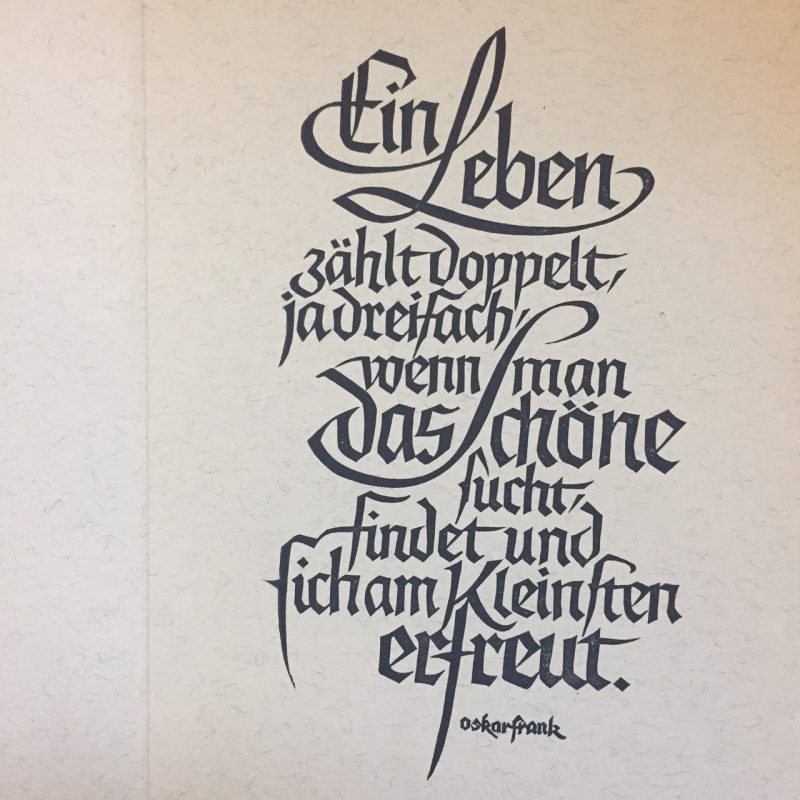 Ein Leben
zählt doppelt,
ja dreifach,
wenn man
das Schöne
sucht,
findet und
sich am Kleinsten
erfreut.
oskar frank